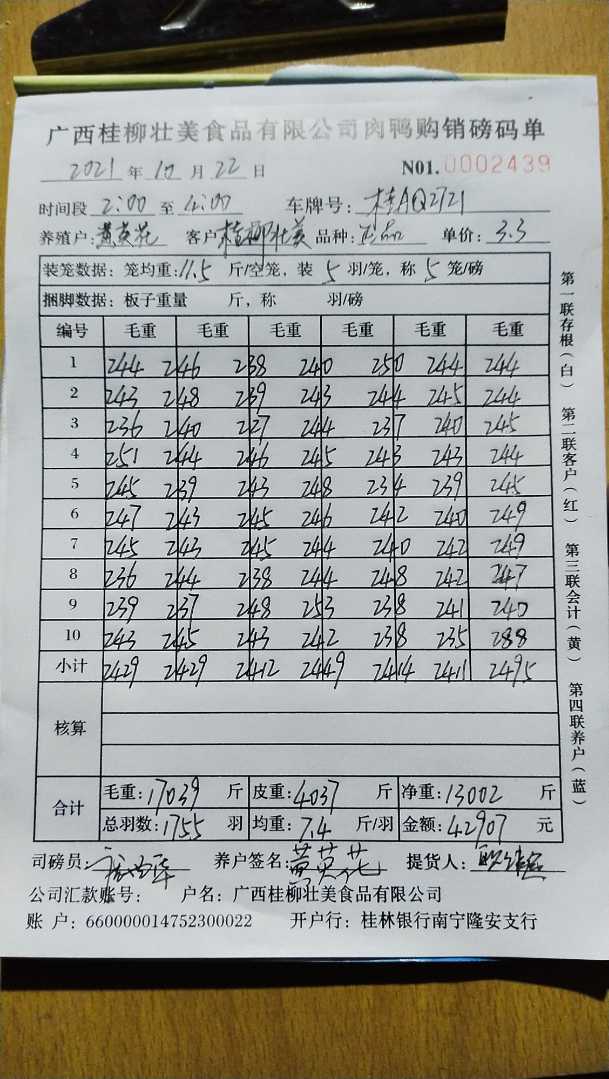 广西桂柳壮美食品有限公司肉鸭购销磅码单
2021 年 10 月 22 日 N01.0002439
时间段 2:00 至 4:00 车牌号: 桂AQ2721
养殖户: 黄英花 客户 桂柳壮美 品种: 正品 单价: 3.3
装笼数据: 笼均重: 11.5 斤/空笼, 装 5 羽/笼, 称 5 笼/磅
捆脚数据: 板子重量 斤, 称 羽/磅
编号 毛重 毛重 毛重 毛重 毛重 毛重
1 244 246 238 240 250 244 244
2 243 248 239 243 244 245 244
3 236 240 227 244 237 240 245
4 251 244 246 245 243 243 244
5 245 239 243 248 234 239 245
6 247 243 245 246 242 240 249
7 245 243 245 244 240 242 249
8 236 244 238 244 248 242 247
9 239 237 248 253 238 241 240
10 243 245 243 242 238 235 288
小计 2429 2429 2412 2449 2414 2411 2495
核算
合计 毛重: 17039 斤 皮重: 4037 斤 净重: 13002 斤
总羽数: 1755 羽 均重: 7.4 斤/羽 金额: 42907 元
司磅员: 养户签名: 黄英花 提货人:
公司汇款账号: 户名: 广西桂柳壮美食品有限公司
账 户: 660000014752300022 开户行: 桂林银行南宁隆安支行
第一联存根(白) 第二联客户(红) 第三联会计(黄) 第四联养户(蓝)